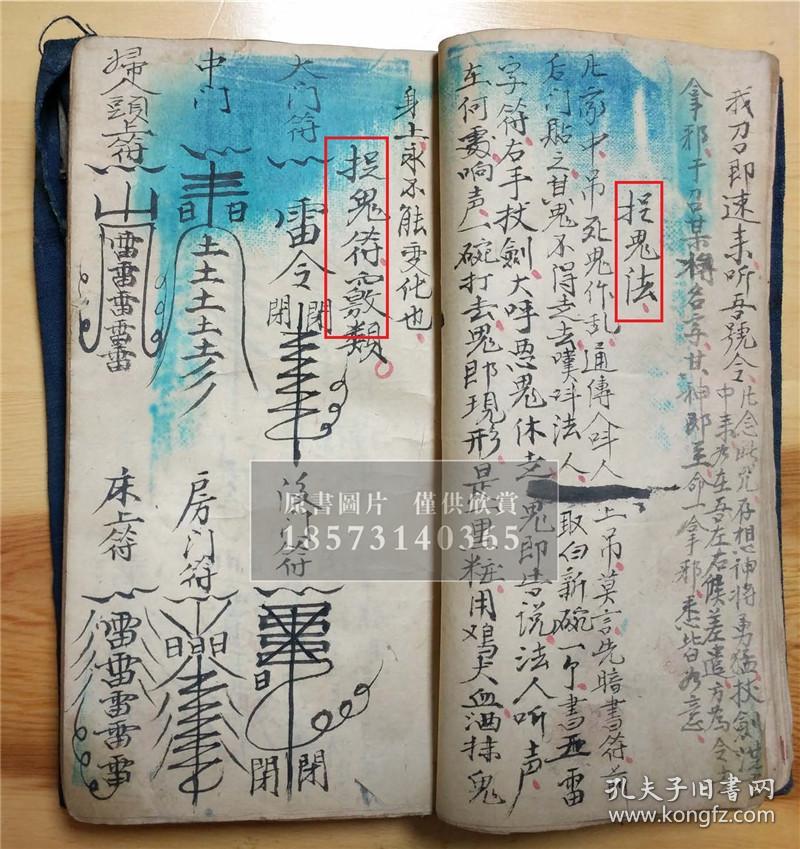 我刀即速来听吾號令
凡念此咒存想神将勇猛杖劍
中来在吾左右候差遣方為令
拿邪 名字其神即至命一拿邪悉皆如意
捉鬼法
凡家中吊死鬼作乱通傳人呌人上吊莫言先暗書符
后门貼之其鬼不得走去嘆呌法人取白新碗一个書五雷
字符右手杖劍大呼惡鬼休走鬼即告説法人听声
在何處响声一碗打去鬼即現形是黑 用鸡犬血洒抹鬼
身上永不能变化也
捉鬼符竅類
大门符
雷令
閉 閉
中门
日 日
土土土土土
婦人頭上符
雷雷雷雷雷
符
日
閉 閉
房门符
日 日日
床上符
雷雷雷雷雷
原書圖片 僅供欣賞
18573140365
孔夫子旧书网
kongfz.com